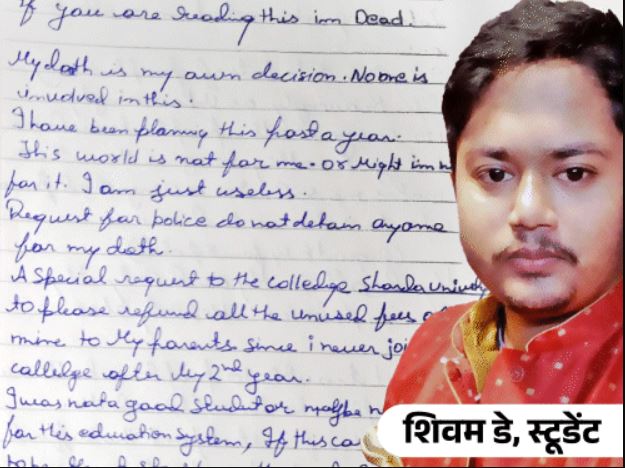 If you are reading this im Dead.
My dath is my own decision. No one is
invudved in this.
I have been planing this past a year.
This world is not for me. or Might im n
for it. I am just useless.
Request for police do not detain
for my dath.
A Special request to the colledge Sharda
to please refund all the unused fees
mine to My parents since i never joi
colledge after My 2nd year.
I was not a good Student or
for this education system, If this
शिवम डे, स्टूडेंट